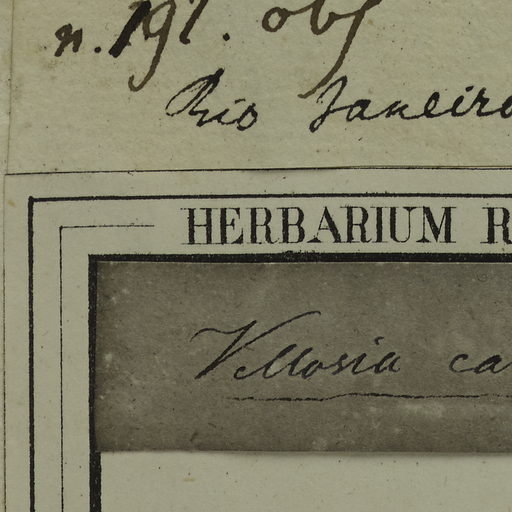 n. 191. obs
Rio Janeiro
HERBARIUM R
Vellosia ca